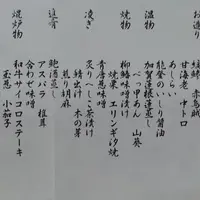 お造り
赤烏賊
甘海老　中トロ
あしらい
能登のいしり醤油
温物
加賀蓮根蓮蒸し
べっ甲あん　山葵
焼物
味噌漬け
焼栗　エリンギ汐焼
味噌
凌ぎ
炙りへしこ茶漬け
鯖出汁　木の芽
煎り胡麻
追肴
鮑酒蒸し
アスパラ　椎茸
合わせ味噌
焜炉物
和牛サイコロステーキ
玉葱　小茄子